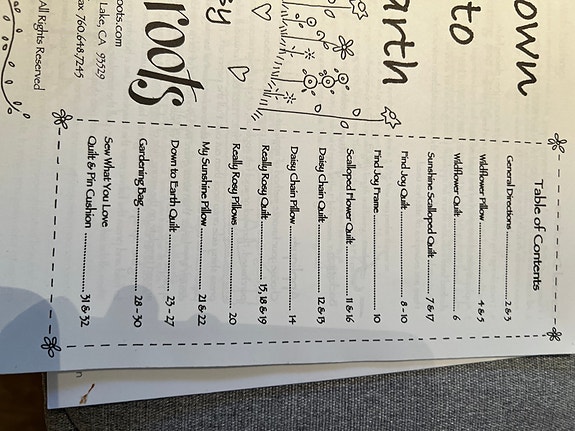 own
to
arth
by
roots
oots.com
Lake, CA 93529
Fax 760.648.7245
All Rights Reserved
Table of Contents
General Directions .......... 2 & 3
Wildflower Pillow .......... 4 & 5
Wildflower Quilt .......... 6
Sunshine Scalloped Quilt .......... 7 & 17
Find Joy Quilt .......... 8 - 10
Find Joy Frame .......... 10
Scalloped Flower Quilt .......... 11 & 16
Daisy Chain Quilt .......... 12 & 13
Daisy Chain Pillow .......... 14
Really Rosy Quilt .......... 15, 18 & 19
Really Rosy Pillows .......... 20
My Sunshine Pillow .......... 21 & 22
Down to Earth Quilt .......... 23 - 27
Gardening Bag .......... 28 - 30
Sew What You Love
Quilt & Pin Cushion .......... 31 & 32